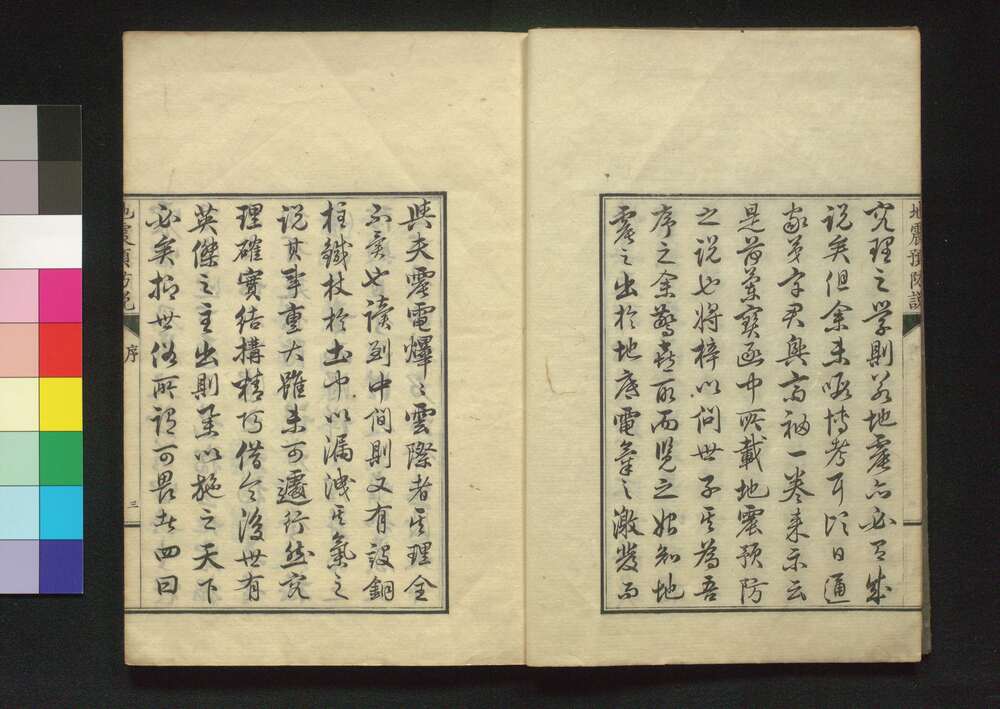 究理之学則若地震亦必有成
説矣但余未暇博考耳頃日通
家弟宇君興斎袖一巻来示云
是前蘭宝函中所載地震預防
之説也将梓以問世子其為吾
序之余驚喜取而覧之始知地
震之出於地底電気之激発而
地震預防説
與夫震電燁々雲際者其理全
不異也読到中間則又有設銅
柱鐵杖於土中以漏洩其氣之
説其事重大雖未可遽行然究
理確實結構精巧借令後世有
英傑之主出則挙以施之天下
必矣抑世俗所謂可畏者四曰
地震預防説
序
三